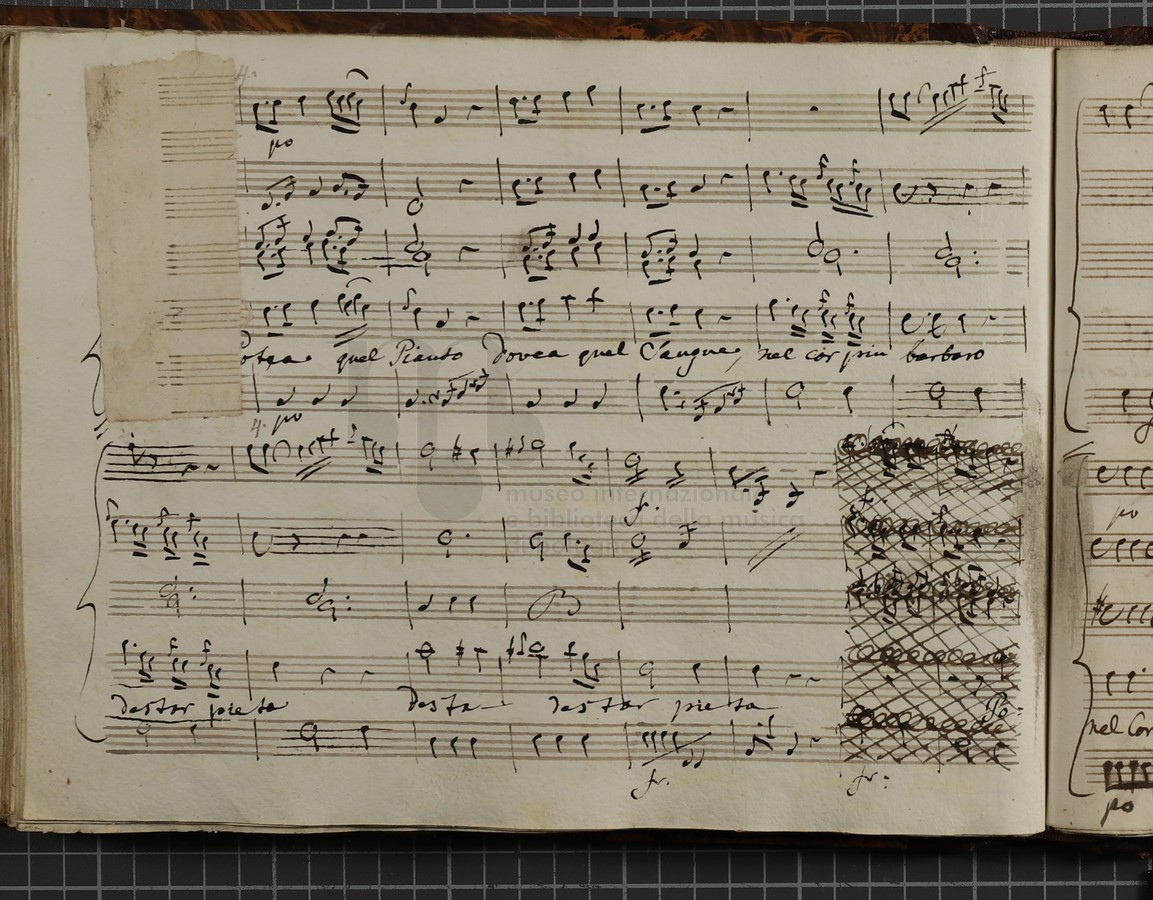 po
quel Pianto Dovea quel Sangue, nel cor piu barbaro
po
museo internazionale
e biblioteca della musica
di bologna
f.
po
Destar pieta Desta Destar pieta
nel Cor
fr. fr:
po